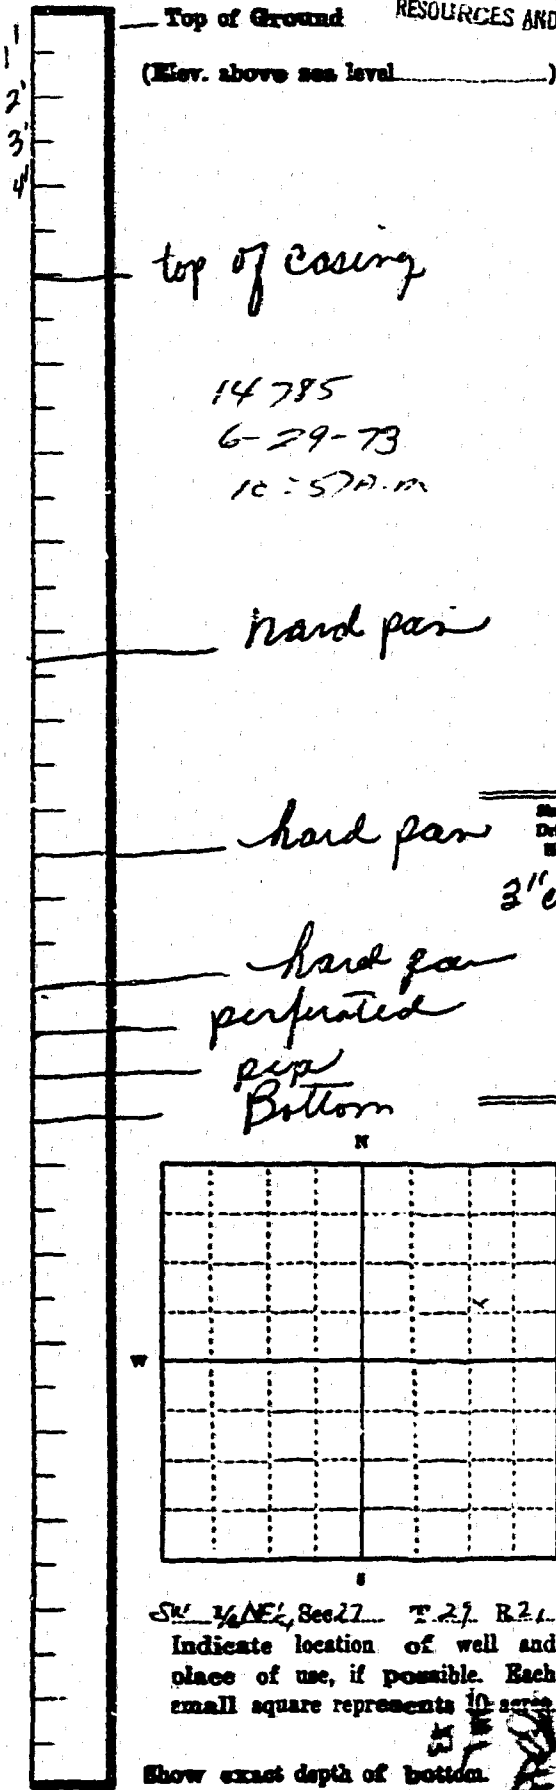 Top of Ground
RESOURCES AND
(Elev. above sea level )
1'
2'
3'
4'
top of casing
14785
6-29-73
10:57A.m
hard pan
hard pan
3"
hard pan
perforated
Bottom
N
W
S
SW 1/4 NE 1/4, Sec 27 T 29 R 21
Indicate location of well and
place of use, if possible. Each
small square represents 10 acres.
Show exact depth of bottom.